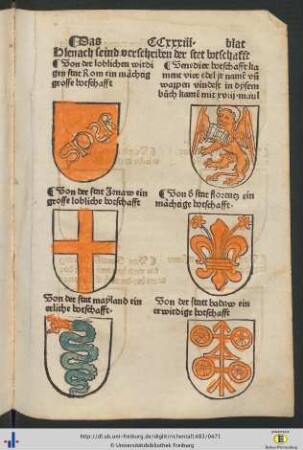 Das CCxxxiii. blat
Hienach seind verschriben der stet botschafft
Von der loblichen wirdi
gen stat Rom ein mächtig
grosse botschafft
Venedier botschafft ka
ment vier edel ir namē vñ
wappen vindest in disem
bůch kamē mit xviij maul
SPQR
Von der stat Jenaw ein
grosse lobliche botschafft
Von d stat florentz ein
mächtige botschafft.
Von der stat mayland ein
erliche botschafft.
Von der statt badow ein
erwirdige botschafft
http://dl.ub.uni-freiburg.de/diglit/richental1483/0471
© Universitätsbibliothek Freiburg